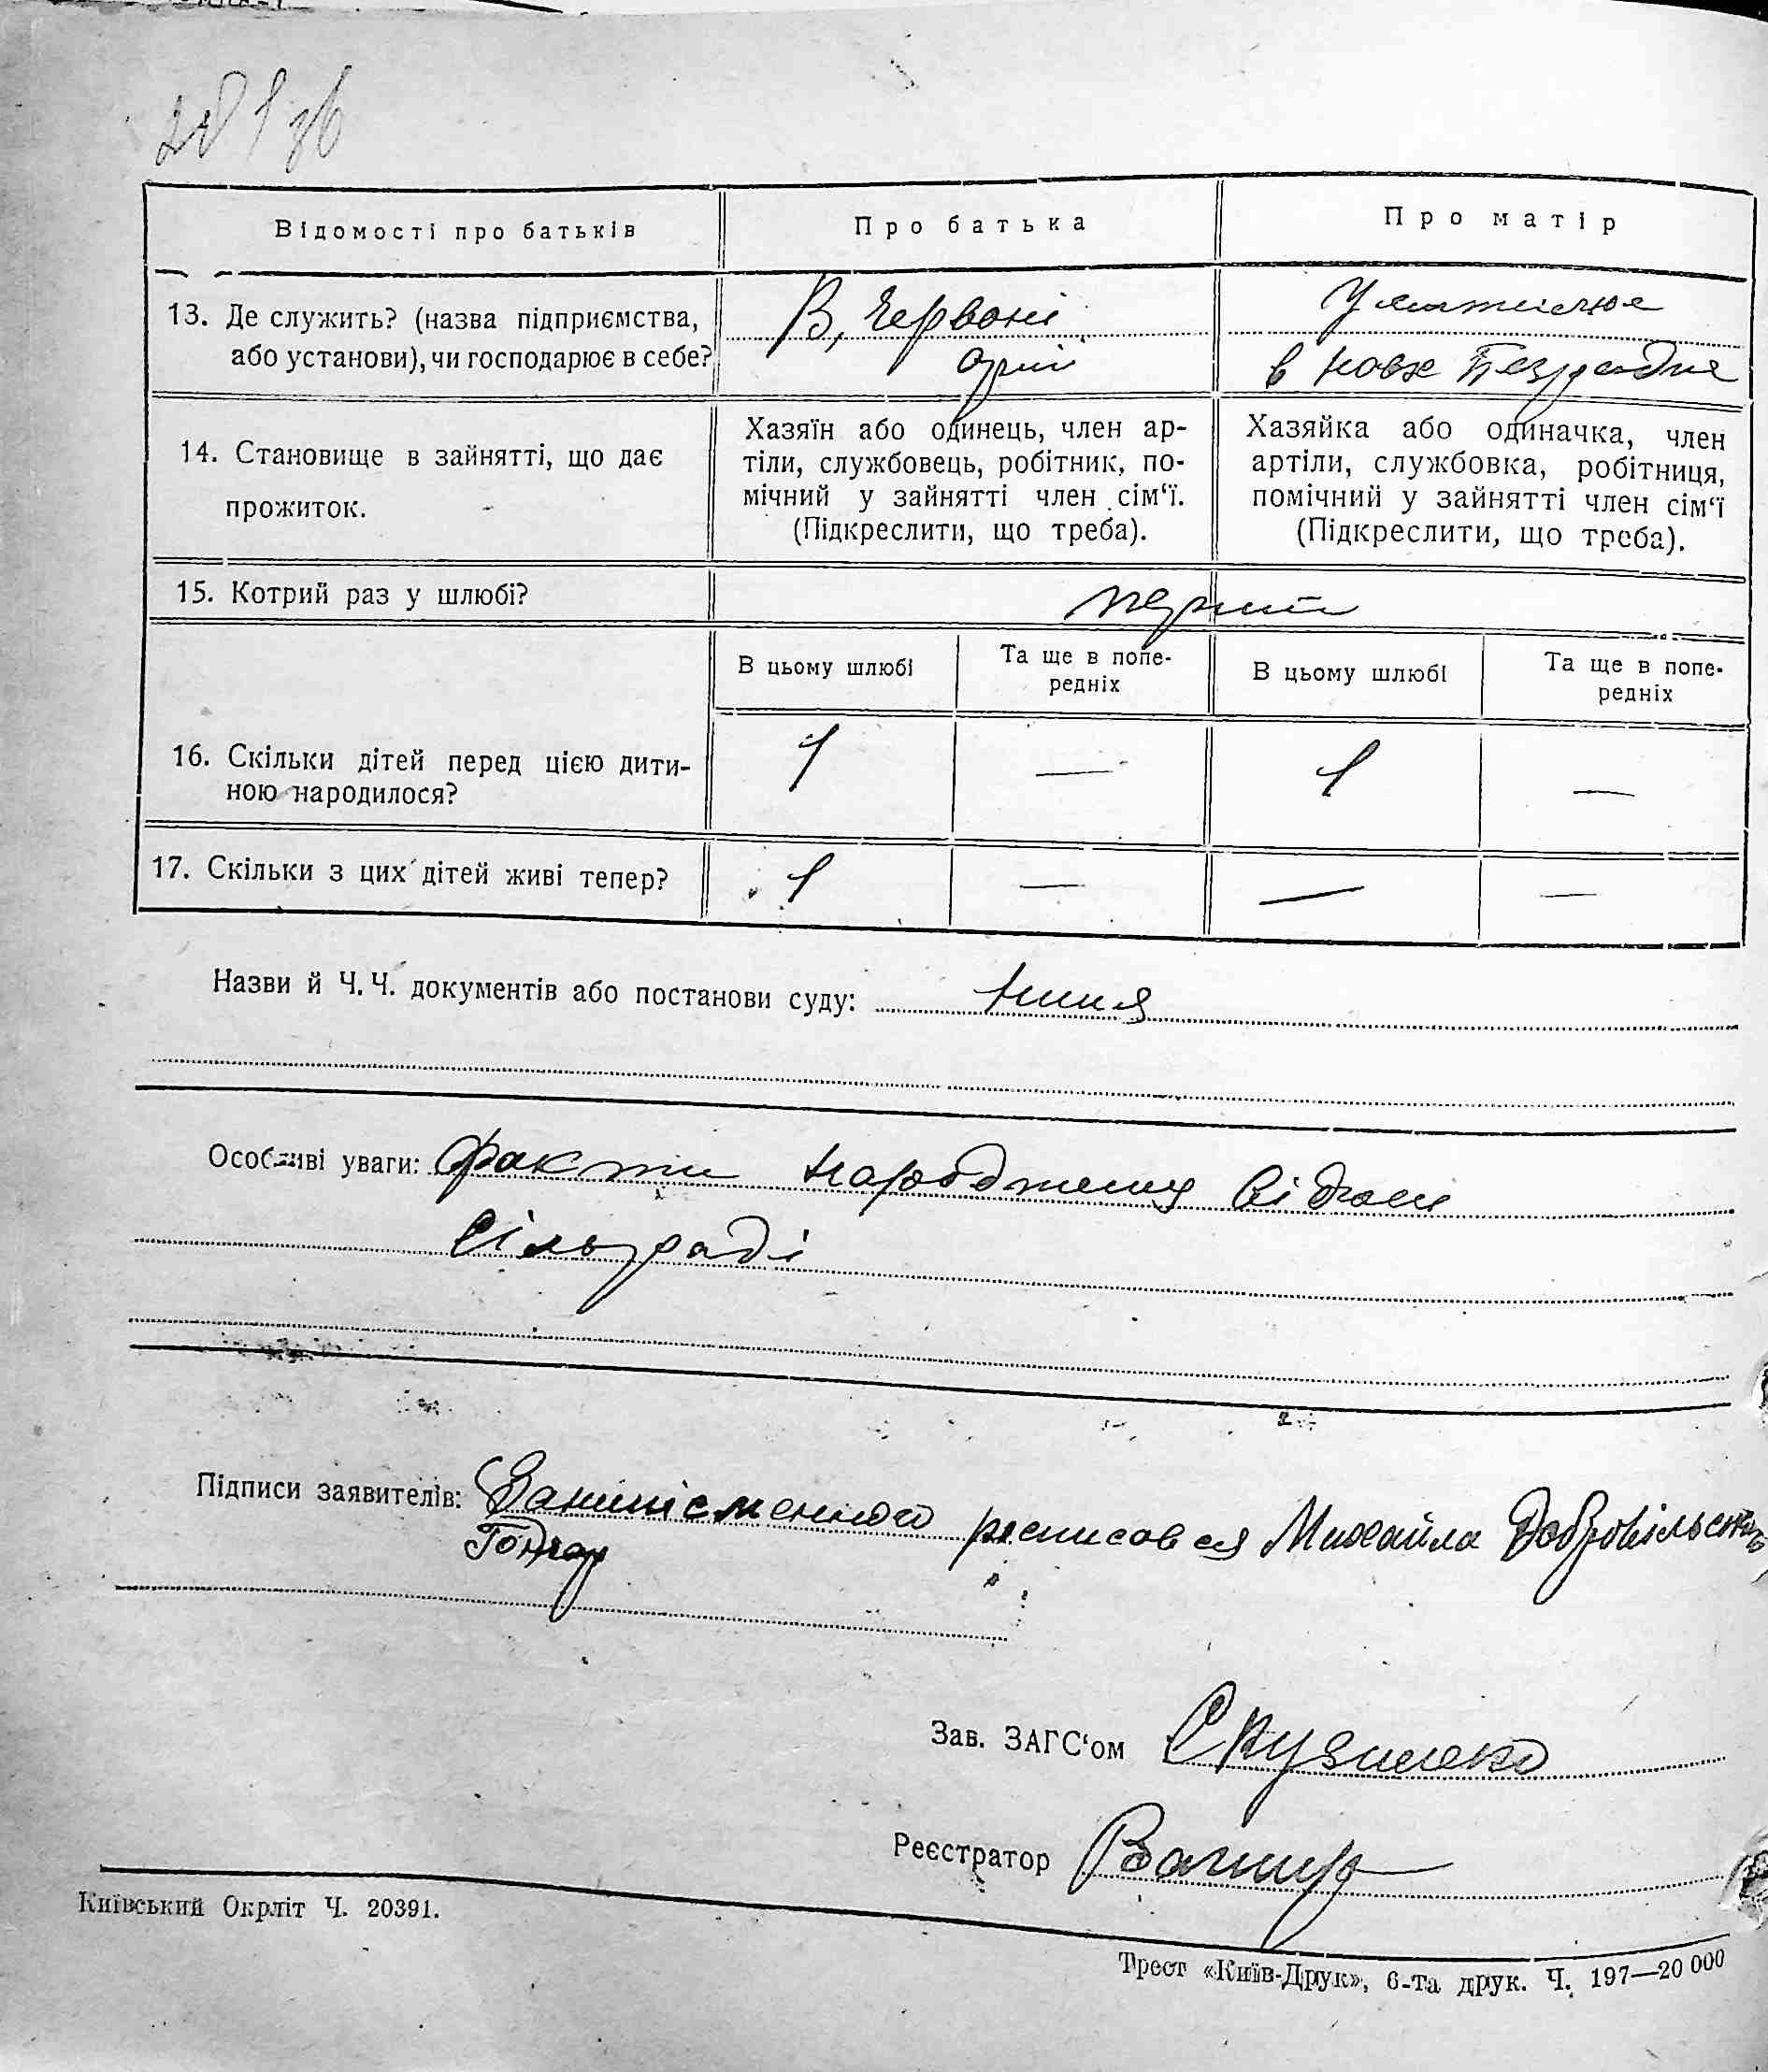 Відомості про батьків
Про батька
Про матір
13. Де служить? (назва підприємства, або установи), чи господарює в себе?
В, Червоні
армії
в
14. Становище в зайнятті, що дає
прожиток.
Хазяїн або одинець, член ар-
тіли, службовець, робітник, по-
мічний у зайнятті член сім‘ї.
(Підкреслити, що треба).
Хазяйка або одиначка, член
артіли, службовка, робітниця,
помічний у зайнятті член сім‘ї
(Підкреслити, що треба).
15. Котрий раз у шлюбі?
В цьому шлюбі
Та ще в попе-
редніх
В цьому шлюбі
Та ще в попе-
редніх
16. Скільки дітей перед цією дити-
ною народилося?
1 — 1 —
17. Скільки з цих дітей живі тепер?
1 — — —
Назви й Ч.Ч. документів або постанови суду:
Особливі уваги: Факти народження
сільраді
Підписи заявителів: росписовся Михайла
Гончар
Зав. ЗАГС‘ом
Реєстратор
Київський Окрліт Ч. 20391.
Трест «Київ-Друк», 6-та друк. Ч. 197—20 000